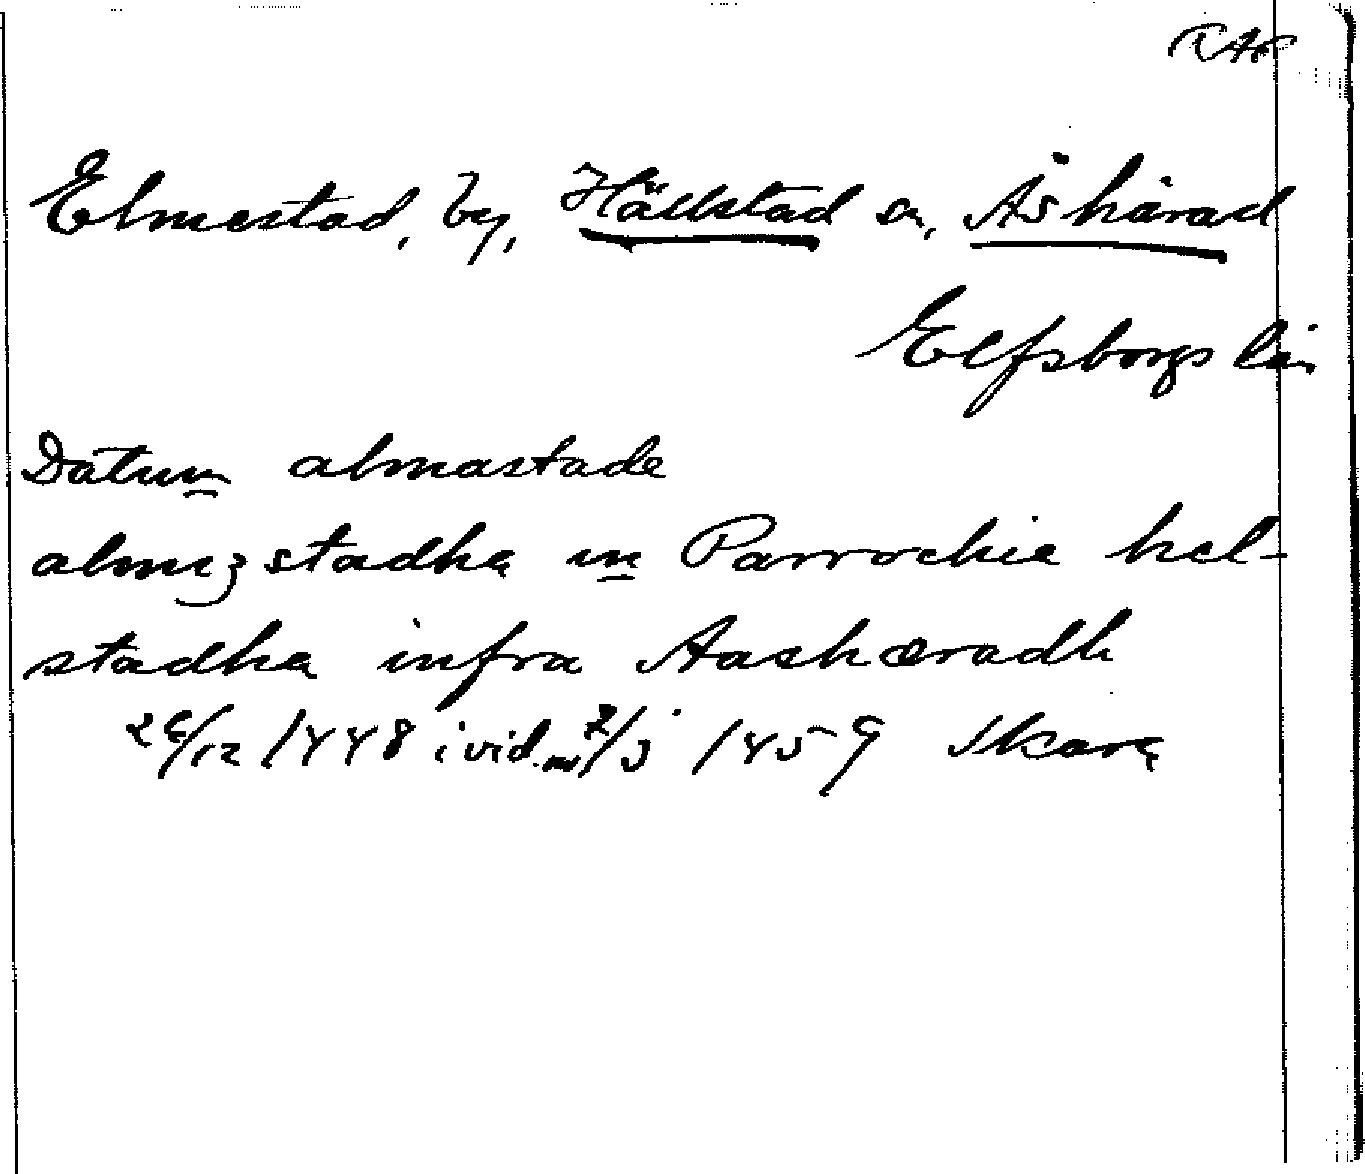 RAp
Elmestad, by, Hällstad sn, Ås härad
Elfsborgs län
Datum almastade
almɜstadha in Parrochie hel-
stadha infra Aashæradh
26/12 1448 i vid. av 2/5 1459 Skara